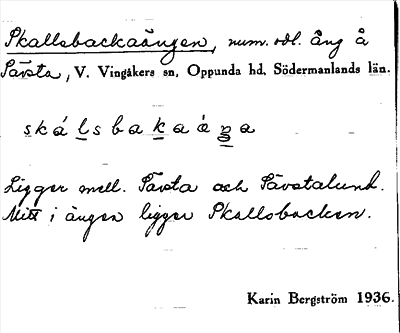 Skallsbackaängen, num. odl. äng å
Sävsta, V. Vingåkers sn, Oppunda hd, Södermanlands län.
skálsbakaàŋa
Ligger mell. Sävsta och Sävstalund.
Mitt i ängen ligger Skallsbacken.
Karin Bergström 1936.